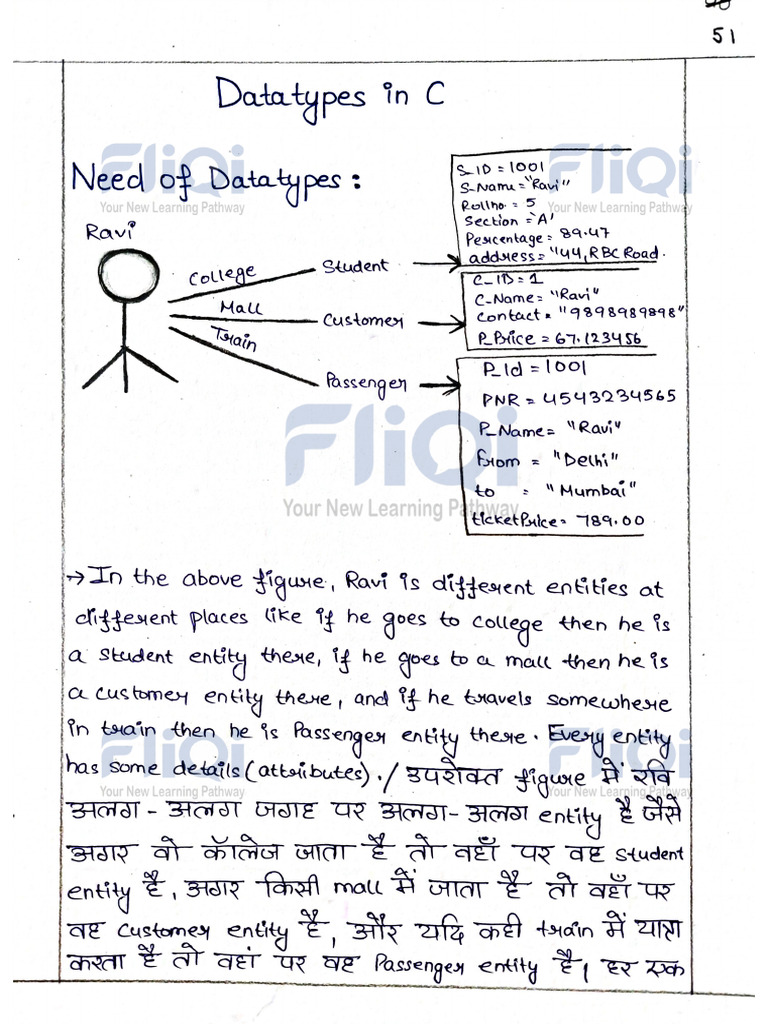 51
Datatypes in C
Need of Datatypes:
FliQi
Your New Learning Pathway
FliQi
Your New Learning Pathway
Ravi
College
Mall
Train
Student
Customer
Passenger
S_ID = 1001
S_Name = "Ravi"
Rollno. = 5
Section = 'A'
Percentage = 89.47
address = "44, RBC Road.
C_ID = 1
C_Name = "Ravi"
Contact = "9898989898"
P_Price = 67.123456
P_Id = 1001
PNR = 4543234565
P_Name = "Ravi"
from = "Delhi"
to = "Mumbai"
ticketPrice = 789.00
FliQi
Your New Learning Pathway
→ In the above figure, Ravi is different entities at
different places like if he goes to college then he is
a student entity there, if he goes to a mall then he is
a customer entity there, and if he travels somewhere
in train then he is Passenger entity there. Every entity
has some details (attributes). / उपरोक्त figure में रवि
FliQi
Your New Learning Pathway
FliQi
Your New Learning Pathway
अलग - अलग जगह पर अलग - अलग entity है जैसे
अगर वो कॉलेज जाता है तो वहाँ पर वह student
entity है, अगर किसी mall में जाता है तो वहाँ पर
वह customer entity है, और यदि कही train में यात्रा
करता है तो वहां पर वह Passenger entity है। हर एक